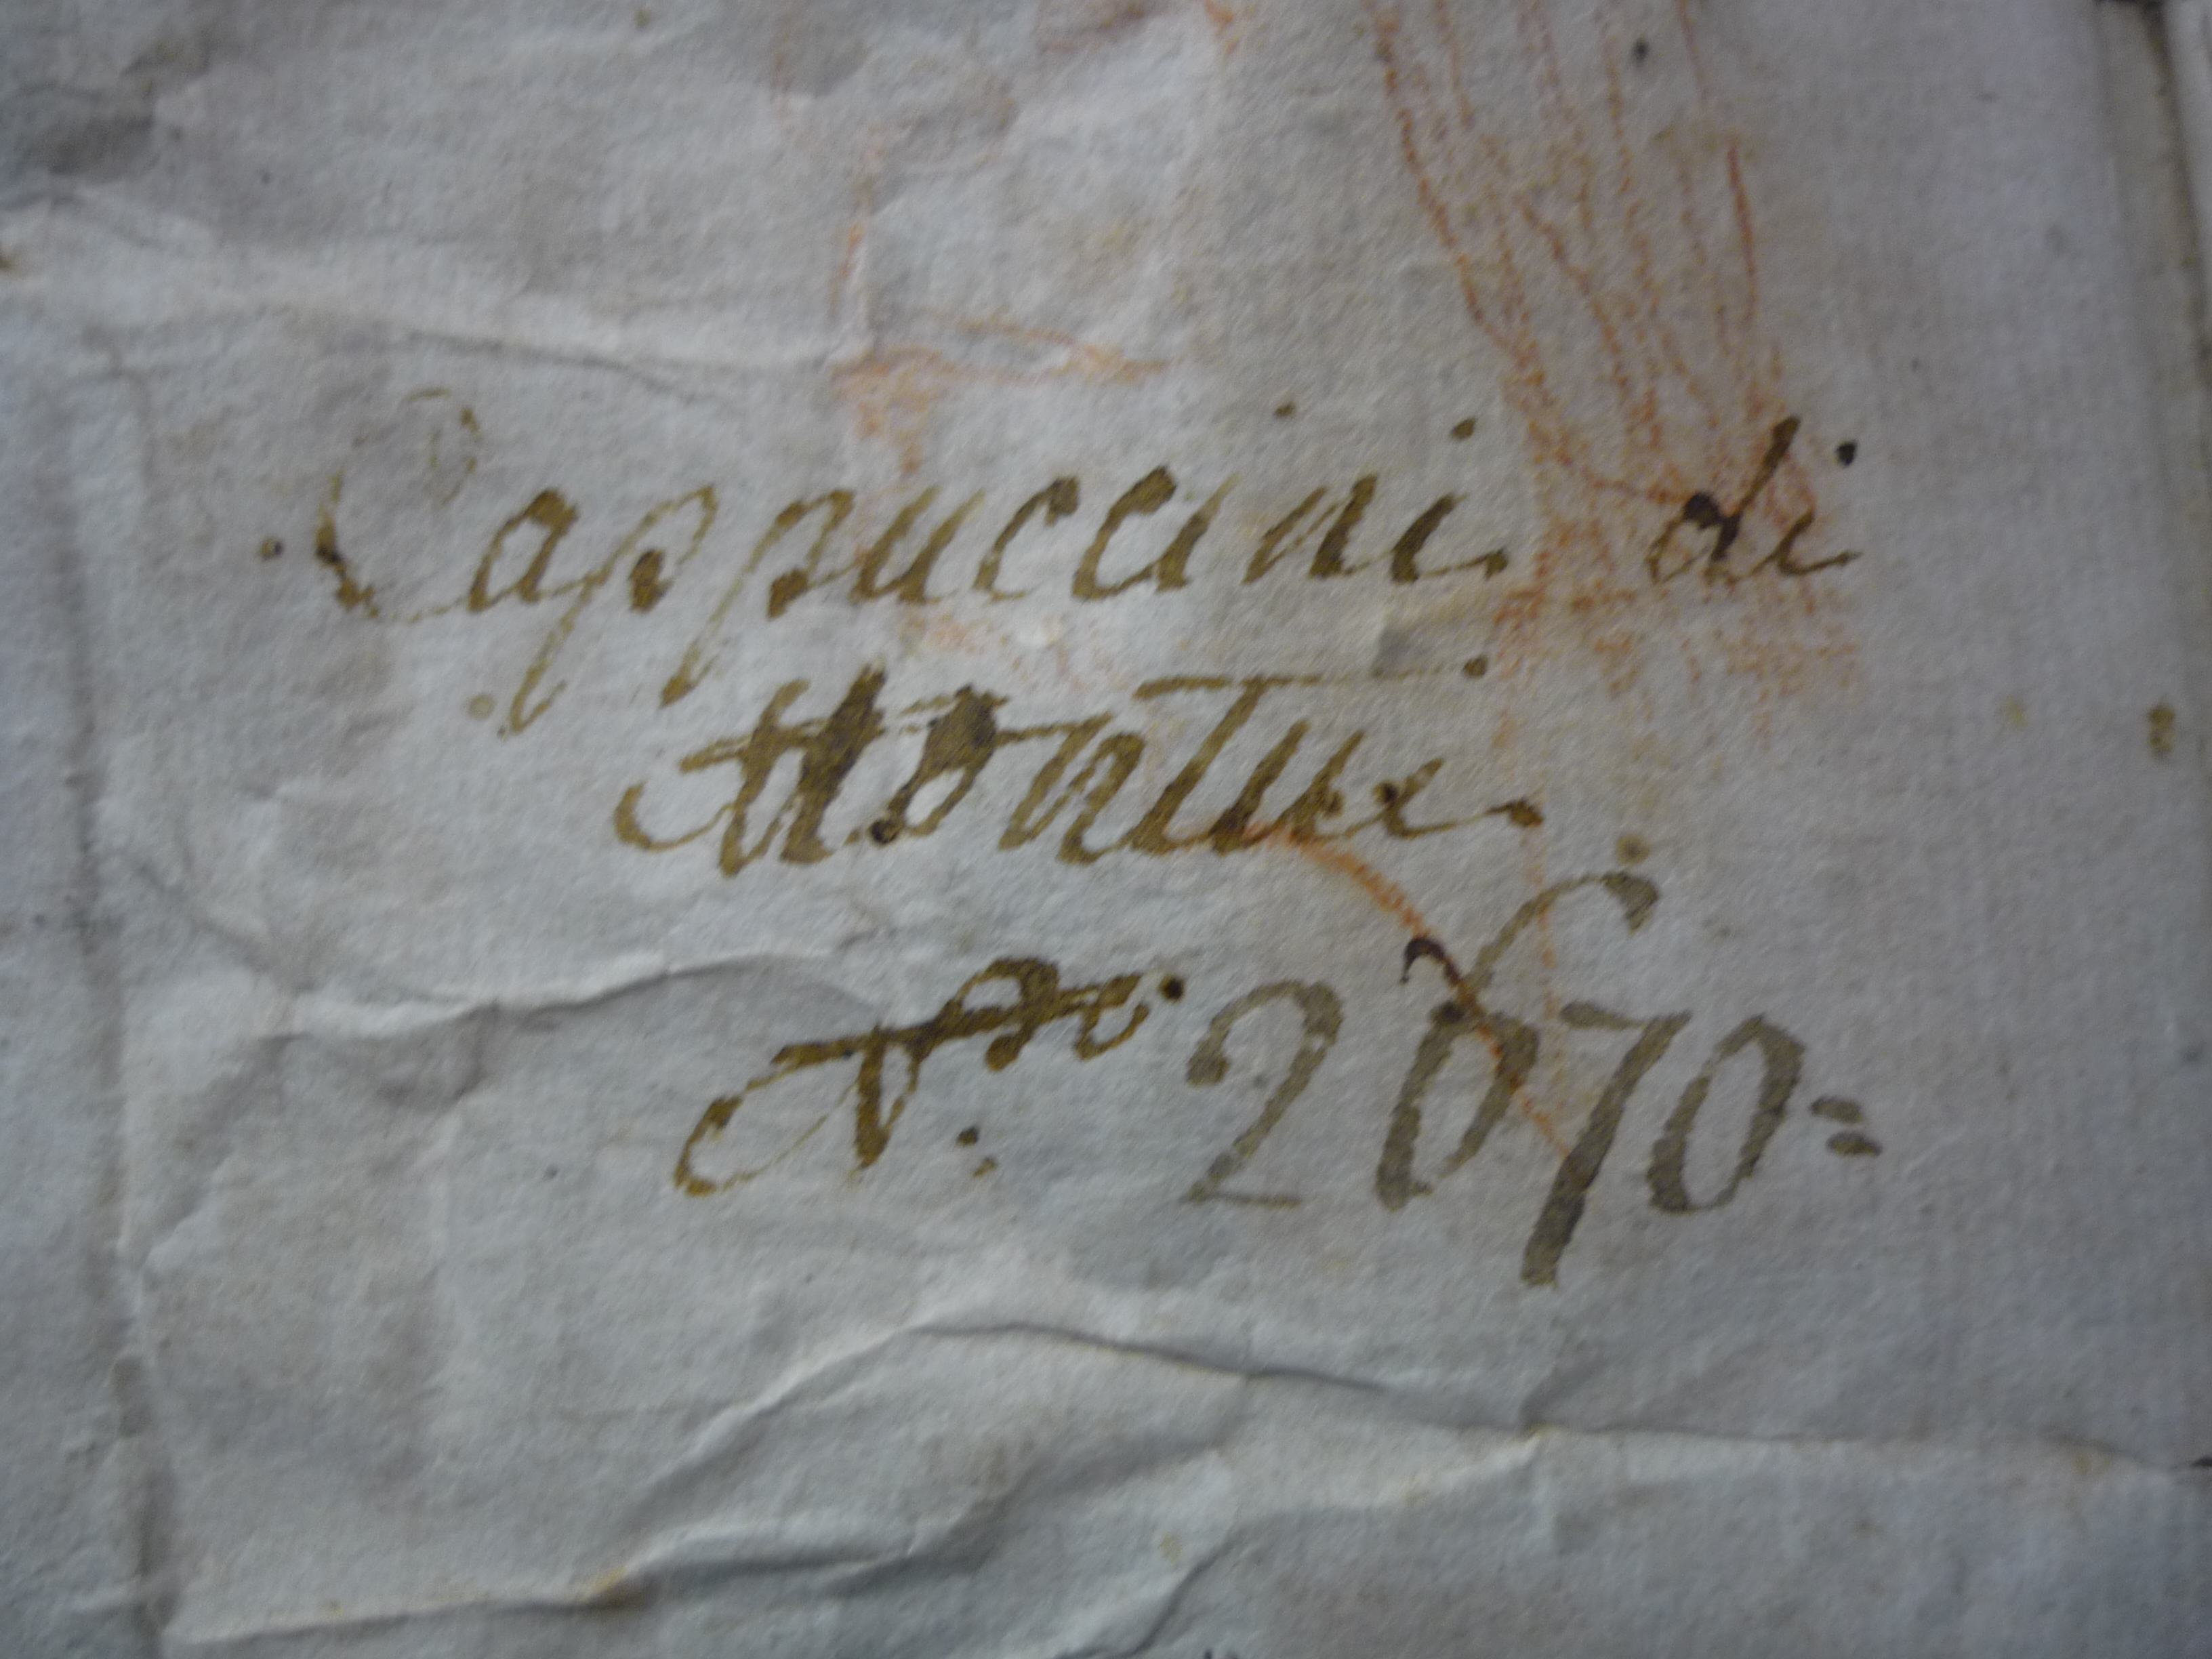 Cappuccini di
Montui
N.ro 2670=